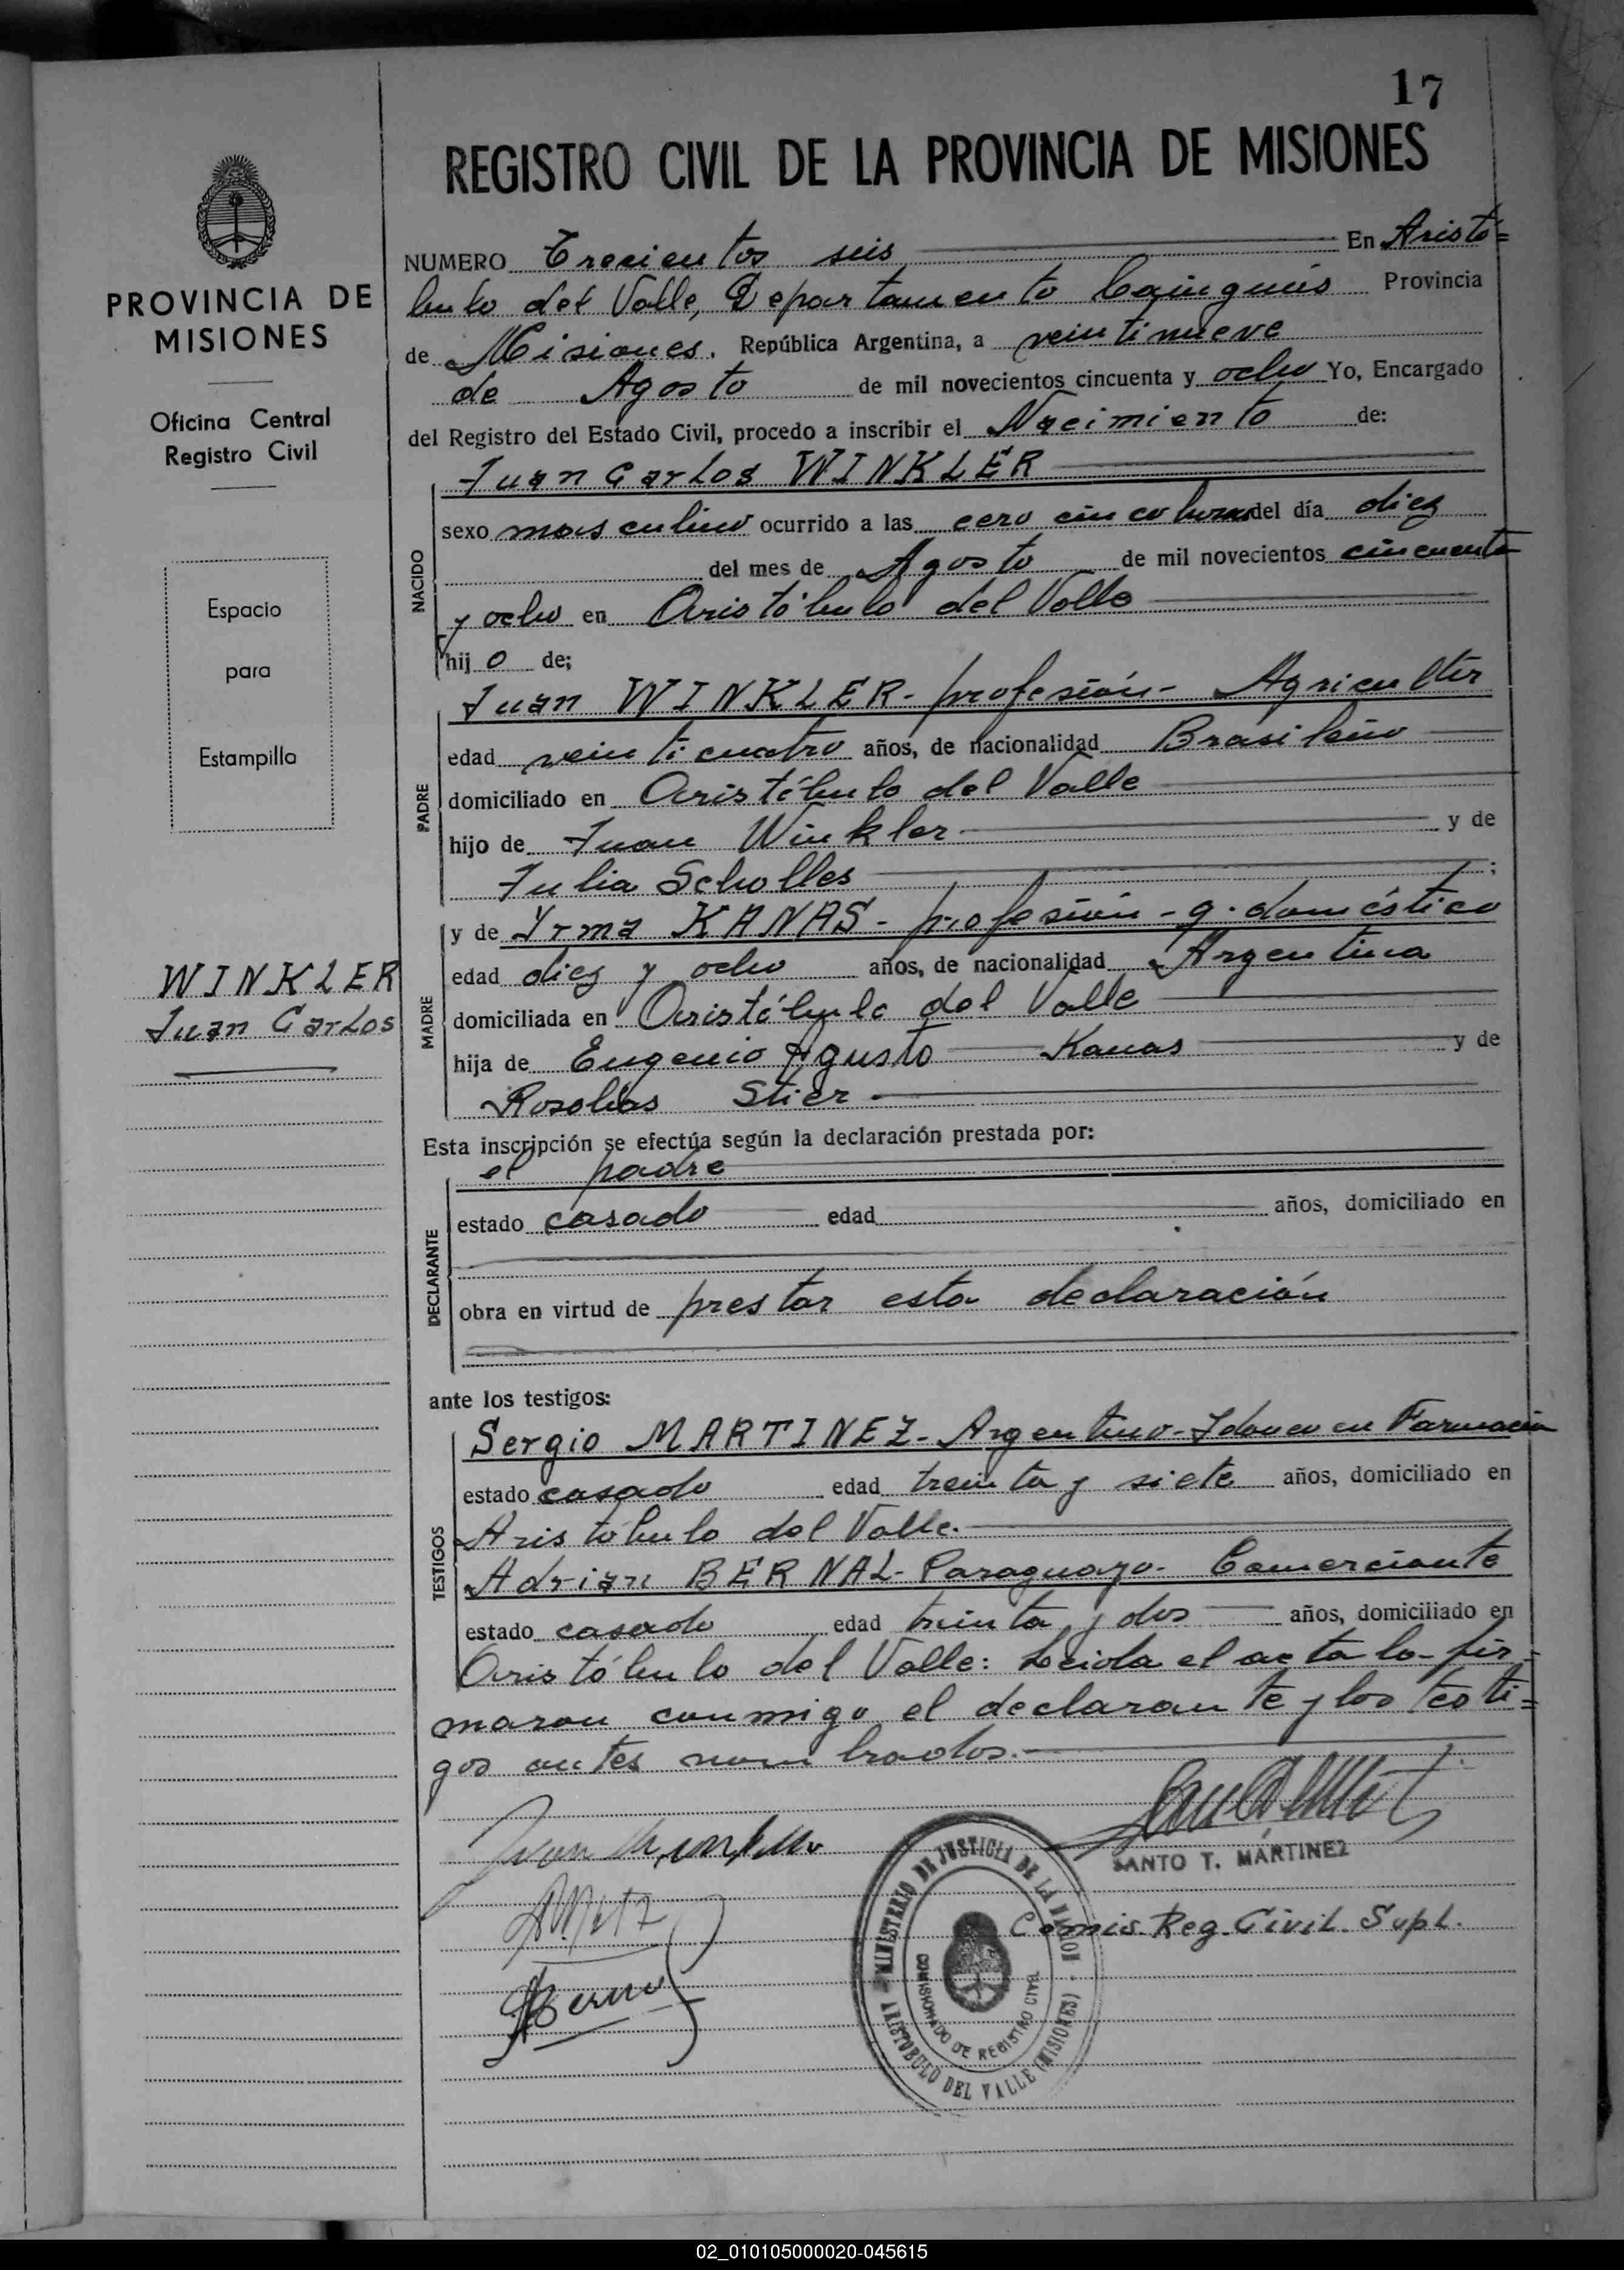 17
REGISTRO CIVIL DE LA PROVINCIA DE MISIONES
PROVINCIA DE
MISIONES
Oficina Central
Registro Civil
Espacio
para
Estampilla
WINKLER
Juan Carlos
NUMERO Trecientos seis En Aristó=
bulo del Valle, Departamento Cainguás Provincia
de Misiones. República Argentina, a veintinueve
de Agosto de mil novecientos cincuenta y ocho Yo, Encargado
del Registro del Estado Civil, procedo a inscribir el Nacimiento de:
NACIDO
Juan Carlos WINKLER
sexo masculino ocurrido a las cero cinco horas del día diez
del mes de Agosto de mil novecientos cincuenta
y ocho en Aristóbulo del Valle
hij o de;
PADRE
Juan WINKLER - profesión - Agricultor
edad veinticuatro años, de nacionalidad Brasileño
domiciliado en Aristóbulo del Valle
hijo de Juan Winkler y de
Julia Scholles ;
MADRE
y de Yrma KANAS - profesión - q. doméstico
edad diez y ocho años, de nacionalidad Argentina
domiciliada en Aristóbulo del Valle
hija de Eugenio Agusto Kanas y de
Rosolias Stier
Esta inscripción se efectúa según la declaración prestada por:
DECLARANTE
el padre
estado casado edad años, domiciliado en
obra en virtud de prestar esta declaración
ante los testigos:
TESTIGOS
Sergio MARTINEZ - Argentino - Idoneo en Farmacia
estado casado edad treinta y siete años, domiciliado en
Aristóbulo del Valle.
Adrian BERNAL - Paraguayo - Comerciante
estado casado edad treinta y dos años, domiciliado en
Aristóbulo del Valle: Leida el acta la fir=
maron conmigo el declarante y los testi=
gos antes nombrados.
SANTO T. MARTINEZ
Comis. Reg. Civil. Supl.
MINISTERIO DE JUSTICIA DE LA NACION
COMISIONADO DE REGISTRO CIVIL
ARISTOBULO DEL VALLE (MISIONES)
02_010105000020-045615